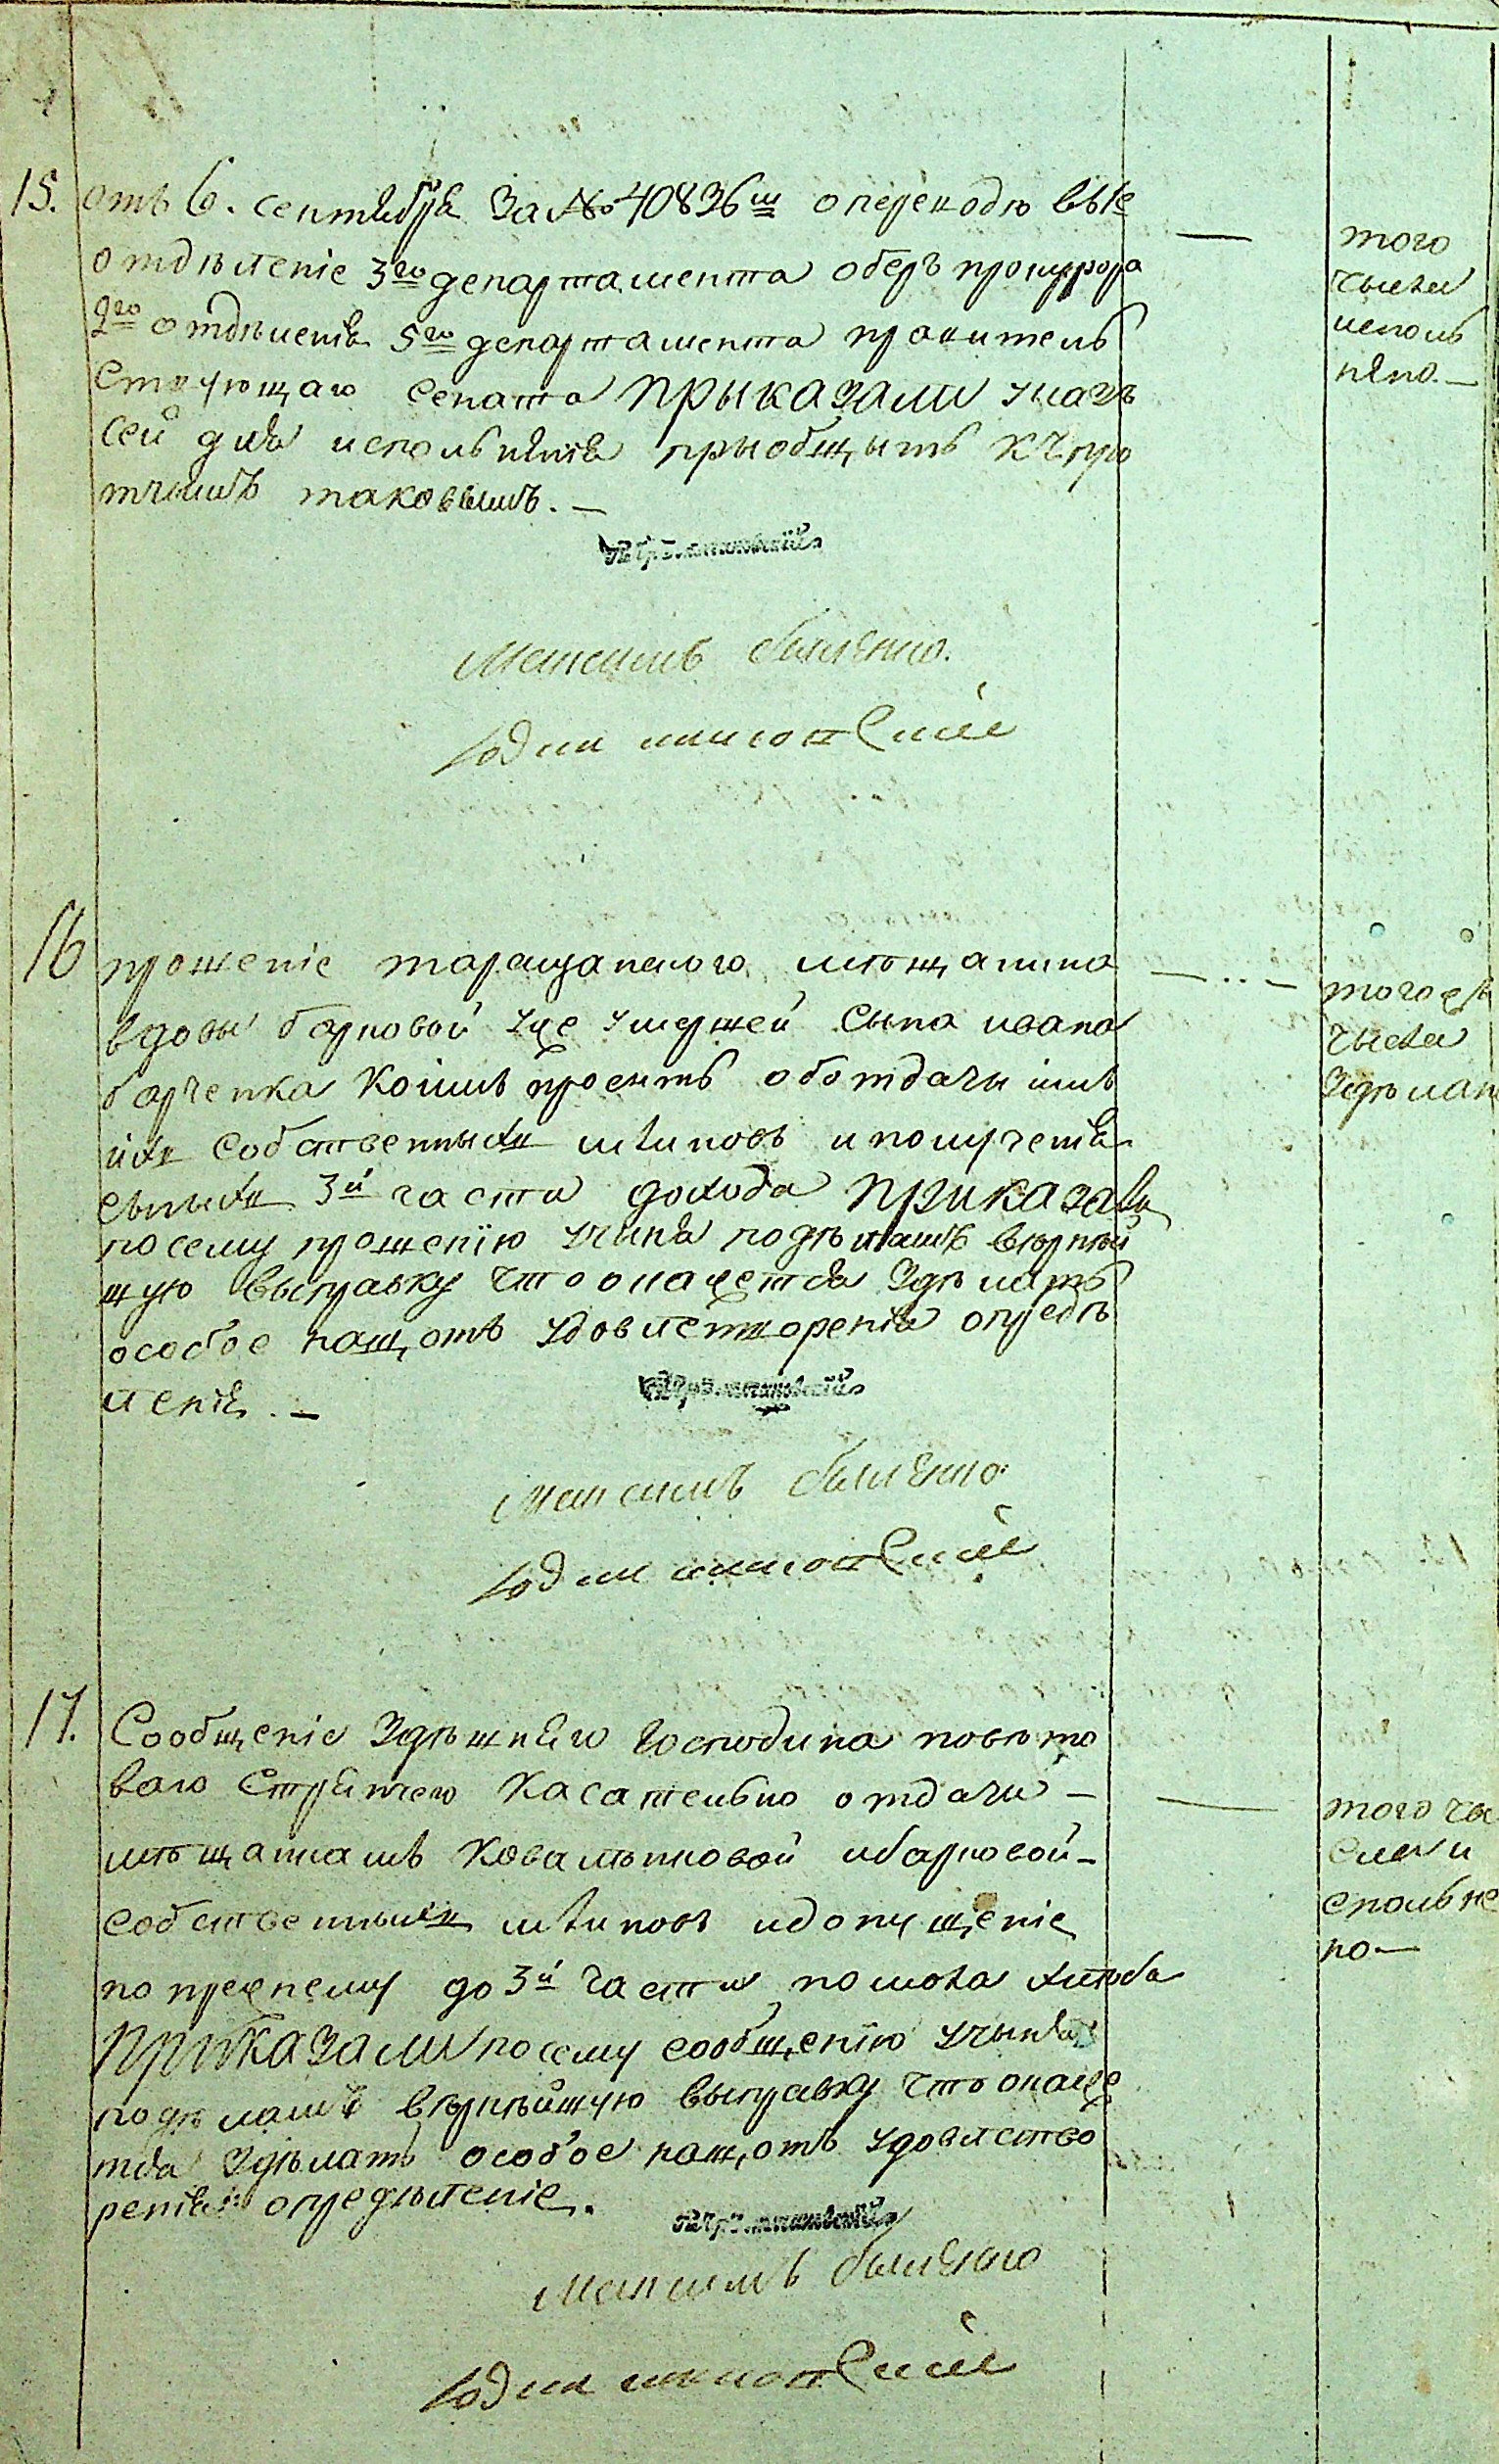 15. отъ 6. сентября За № 40836мъ о переходѣ въ 1е
отдѣленіе 3го департамента оберъ прокурора
2го отдѣленія 5го департамента правитель
ствующаго сената Прыказали указъ
сей для испольнѣнія прыобщыть къ про
тчимъ таковымъ. —
того
чысла
исполь
нѣно. —
16 прошеніе таращанского мѣщанина
вдовы барковой уже умершей сына ивана
барченка коимъ просить об отдачи имъ
ихъ собственныхъ млиновъ и получения
с оныхъ 3й части дохода Приказали
по сему прошенію учиня подѣламъ вѣрнѣй
шую выправку что окажется Здѣлать
особое нащотъ удовлетворенія опредѣ
ленія. —
того ж
чысла
Здѣлан
17. Сообщеніе Здѣшнего Господина повѣто
ваго Стряпчего касательно отдачи —
мѣщанкамъ Ковалѣнковой и барковой —
собственныхъ млиновъ и допущеніе
по прежнему до 3й части помола хлѣба
Приказали по сему сообщенію учыня
подѣламъ вѣрнѣйшую выправку что окаже
тся Здѣлать особое нащотъ удовлетво
ренія опредѣленіе.
того чы
сла и
спольне
но —